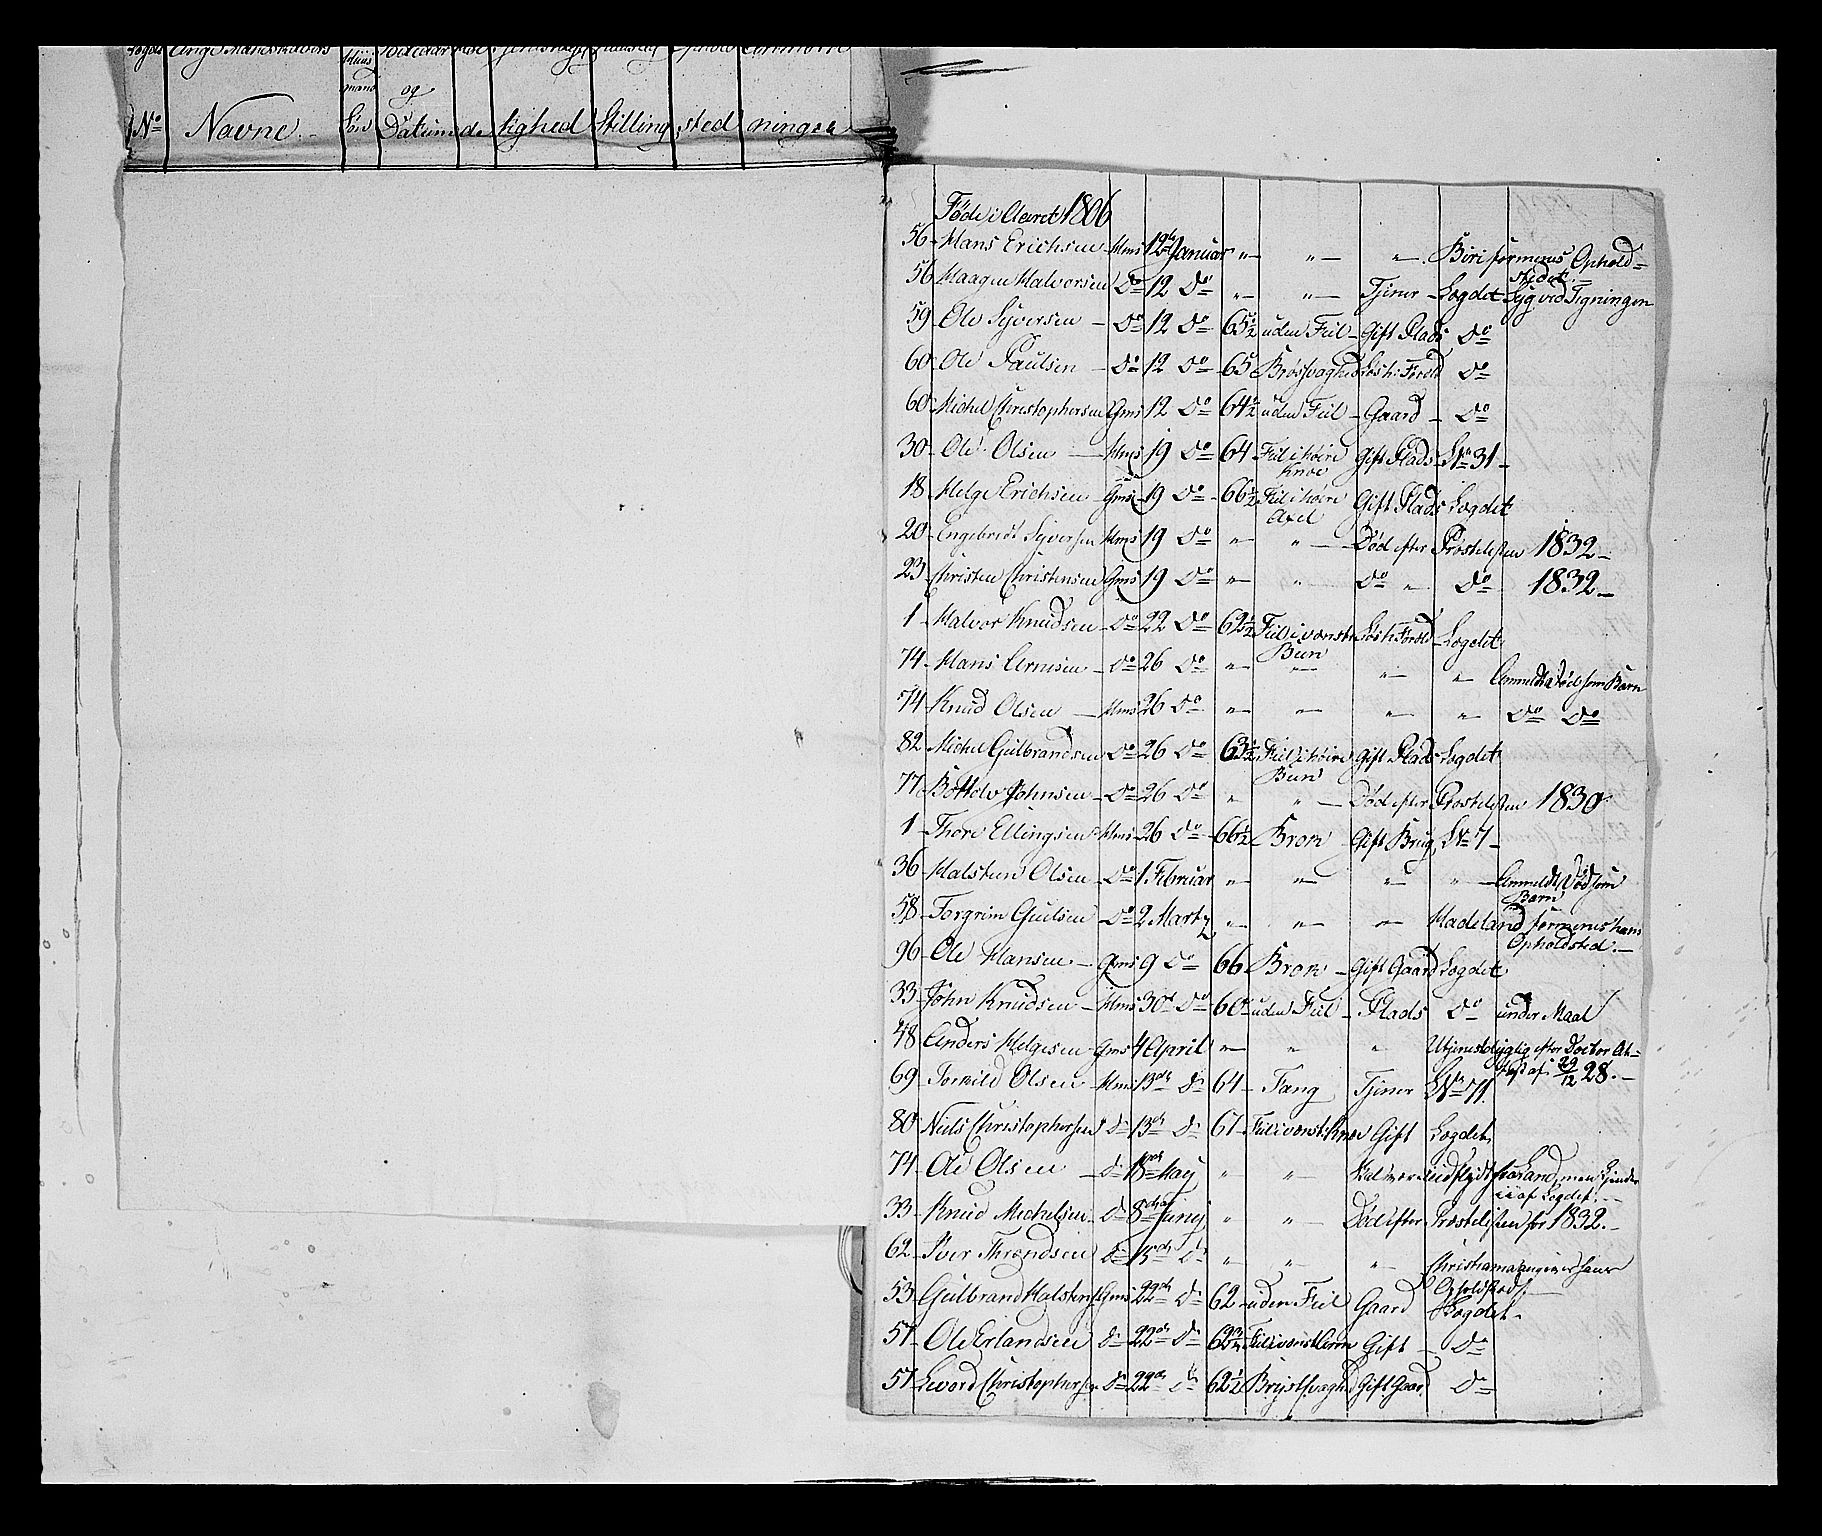 Navne
No Navne. Søn Datum de lighed Stilling sted ninger
og
Føde i Aaret 1806
56 Hans Erichsen Hms 12te Januar " " " Biri formenes Ophold=
stedet.
56 Haagen Halvorsen do 12 do " " Tjener Logdet Syg ved Tegningen
59 Ole Syversen do 12 do 65½ uden Feil Gift Plads do
60 Ole Paulsen do 12 do 65 Brøsvaghed Løs h: Foræld do
60 Michel Christophersen Gms 12 do 64½ uden Feil Gaard do
30 Ole Olsen Hms 19 do 64 Feil i høire Gift Plads No 31
Knæe
18 Helge Erichsen Gms 19 do 66½ Feil i høire Gift Plads Logdet
Axel
20 Engebret Syversen Hms 19 do " " Død efter Præstelisten 1832
23 Christen Christensen Gms 19 do " " do " do 1832
1 Halvor Knudsen do 22 do 62½ Feil i venst: Løs h: Foræld Logdet
Been
74 Hans Arnesen do 26 do " " " " Anmeldt Død som Barn
74 Knud Olsen Hms 26 do " " " " do do
82 Michel Gulbrandsen do 26 do 63½ Feil i høire Gift Plads Logdet
Been
77 Bottolv Johnsen do 26 do " " Død efter Præstelisten 1830
1 Thore Ellingsen Hms 26 do 66½ Brok Gift Brug No 7
36 Halsten Olsen do 1 Februar " " " " Anmeldt Død som
Barn
58 Torgrim Gulsen do 2 Marty " " " Hadeland formenes hans
Opholdsted.
96 Ole Hansen Gms 9 do 66 Brok Gift Gaard Logdet
33 John Knudsen Hms 30te do 60 uden Feil Plads do under Maal
48 Anders Helgesen Gms 4 April " " " Utjenstdygtig efter Doctor At=
test af 29/12 28.
69 Torkild Olsen Hms 13de do 64 Tang Tjener No 71
80 Niels Christophersen do 13de do 67 Feil i venst: Knæe Gift Logdet
74 Ole Olsen do 18de May " " Halvor
33 Knud Michelsen do 8de Juny " " Død efter Præstelisten for 1832.
62 Iver Throndsen do 15de do " " " Christiania angives hans
Opholdsted.
53 Gulbrand Halstensen Gms 22de do 62 uden Feil Gaard Logdet
57 Ole Erlandsen do 22de do 62¾ Feil i venst Arm Gift do
57 Sevord Christophersen do 22de do 62½ Brystsvaghed Gift Gaard do